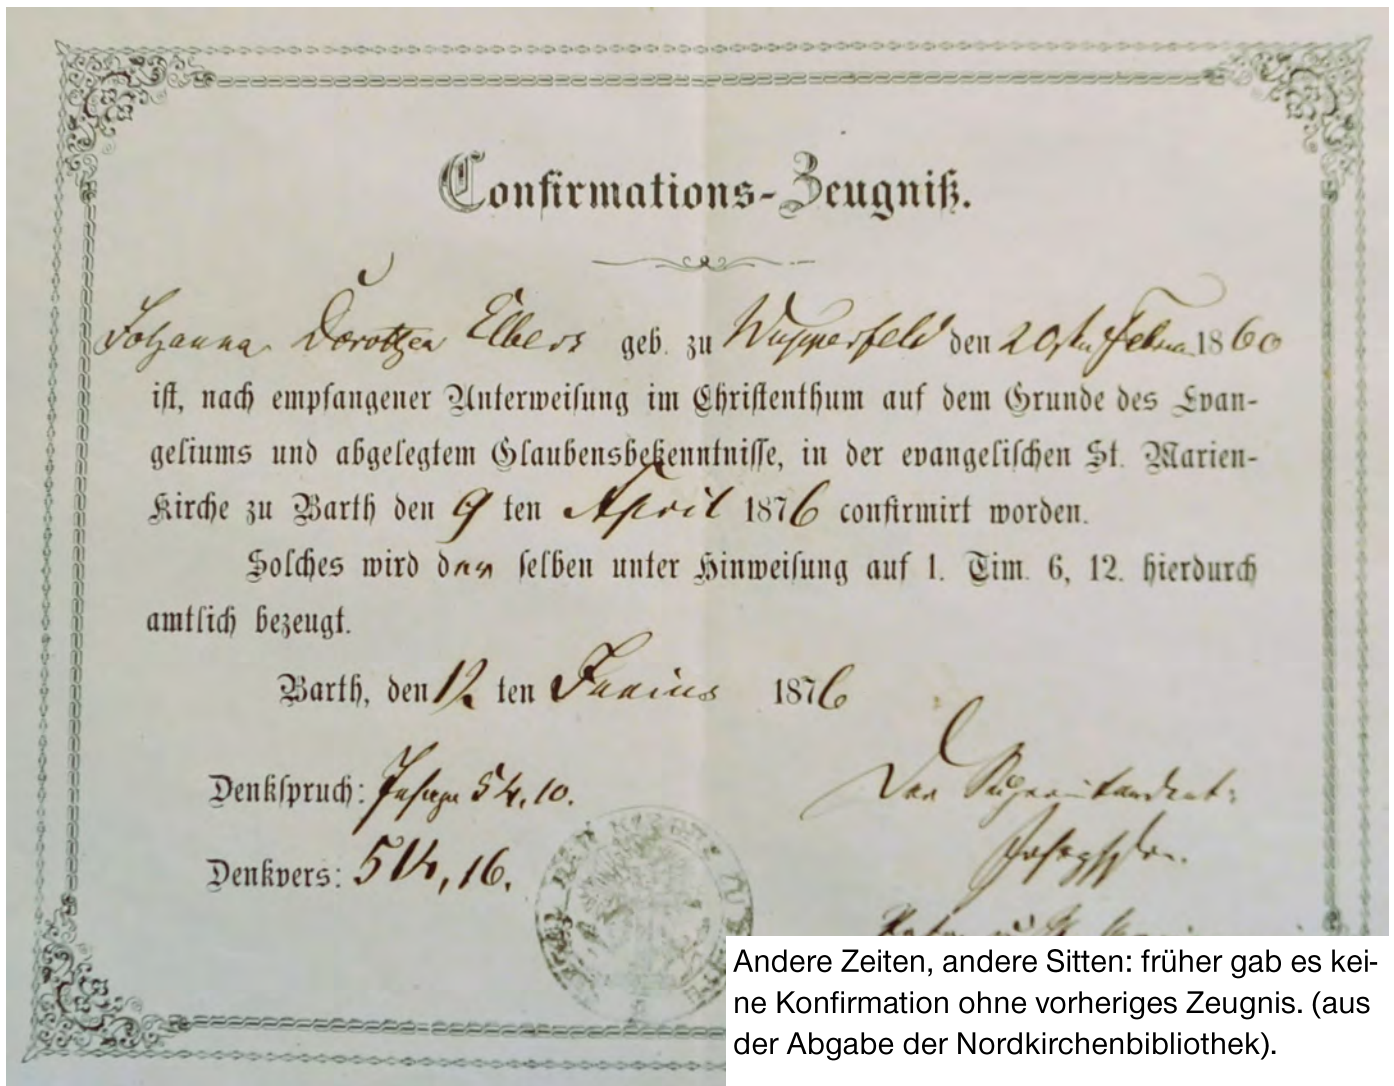 Confirmations-Zeugniß.
Johanna Dorothea Elbers geb. zu Wupperfeld den 20sten Februar 1860
ist, nach empfangener Unterweisung im Christenthum auf dem Grunde des Evan-
geliums und abgelegtem Glaubensbekenntnisse, in der evangelischen St. Marien-
Kirche zu Barth den 9 ten April 1876 confirmirt worden.
Solches wird der selben unter Hinweisung auf 1. Tim. 6, 12. hierdurch
amtlich bezeugt.
Barth, den 12 ten Junius 1876
Denkspruch: Jesaja 54, 10.
Der Superintendent:
Denkvers: 514, 16.
Andere Zeiten, andere Sitten: früher gab es kei-
ne Konfirmation ohne vorheriges Zeugnis. (aus
der Abgabe der Nordkirchenbibliothek).